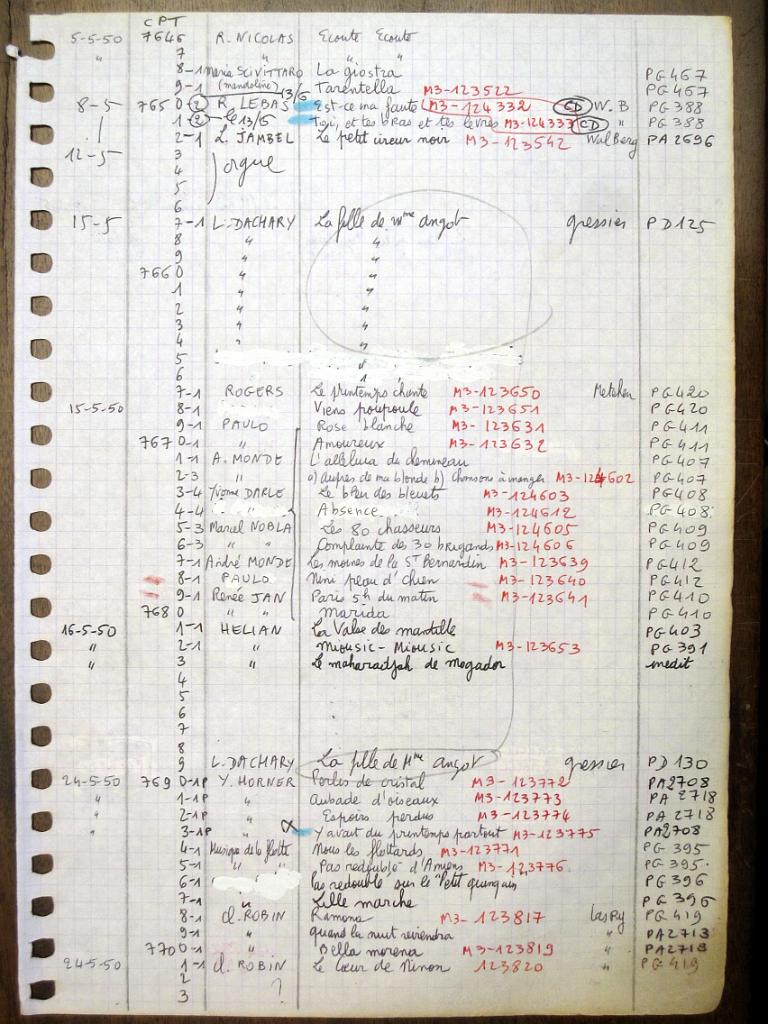 CPT
5-5-50 7646 R. NICOLAS Ecoute Ecoute
" 7 " "
8-1 maria SCIVITTARO La giostra PG467
9-1 (mandoline) Tarentella M3-123522 PG467
8-5 765 0 2 R LEBAS 13/6 Est-ce ma faute M3-124332 CD W.B PG388
1-2 - le 13/6 Toi, et tes bras et tes levres M3-124333 CD " PG388
2-1 L. JAMBEL Le petit cireur noir M3-123542 Wal Berg PA 2696
12-5 3 orgue
4
5
6
15-5 7-1 L. DACHARY La fille de mme angot gressier PD125
8 " "
9 " "
766 0 " "
1 " "
2 " "
3 " "
4 " "
5 "
6 "
7-1 ROGERS Le printemps chante M3-123650 Metehen PG420
15-5-50 8-1 Viens poupoule M3-123651 PG420
9-1 PAULO Rose blanche M3-123631 PG411
767 0-1 " Amoureux M3-123632 PG411
1-1 A. MONDE L'alleluia du demineau PG407
2-3 " a) aupres de ma blonde b) Chansons à manger M3-124602 PG407
3-4 Yvonne DARLE Le bleu des bleuets M3-124603 PG408
4-4 Absence M3-124612 PG408
5-3 Marcel NOBLA Les 80 chasseurs M3-124605 PG409
6-3 " " Complainte des 30 brigands M3-124606 PG409
7-1 André MONDE Les moines de la St Bernardin M3-123639 PG412
8-1 PAULO Nini peau d'chien M3-123640 PG412
9-1 Renée JAN Paris 5h du matin M3-123641 PG410
768 0 " " Marida PG410
16-5-50 1-1 HELIAN La Valse des mantille PG403
" 2-1 " Miousic-Miousic M3-123653 PG391
" 3 " Le maharadjah de Mogador inedit
4
5
6
7
8
9 L. DACHARY La fille de Mme angot gressier PD130
24-5-50 769 0-1P Y. HORNER Perles de cristal M3-123772 PA2708
" 1-1P " Aubade d'oiseaux M3-123773 PA 2718
" 2-1P " Espoirs perdus M3-123774 PA 2718
" 3-1P Y avait du printemps partout M3-123775 PA2708
4-1 Musique de la flotte Nous les flottards M3-123771 PG 395
5-1 " " Pas redoublé d'Amiens M3-123776 PG 395
6-1 Pas redoublé sur le "Petit quinquin" PG396
7-1 " Lille marche PG 396
8-1 d. ROBIN Ramona M3-123817 Las Ry PG419
9-1 " quand la nuit reviendra " PA2713
770 0-1 " Bella morena M3-123819 " PA2713
24-5-50 1-1 d. ROBIN Le Cœur de Ninon 123820 " PG419
2 ?
3